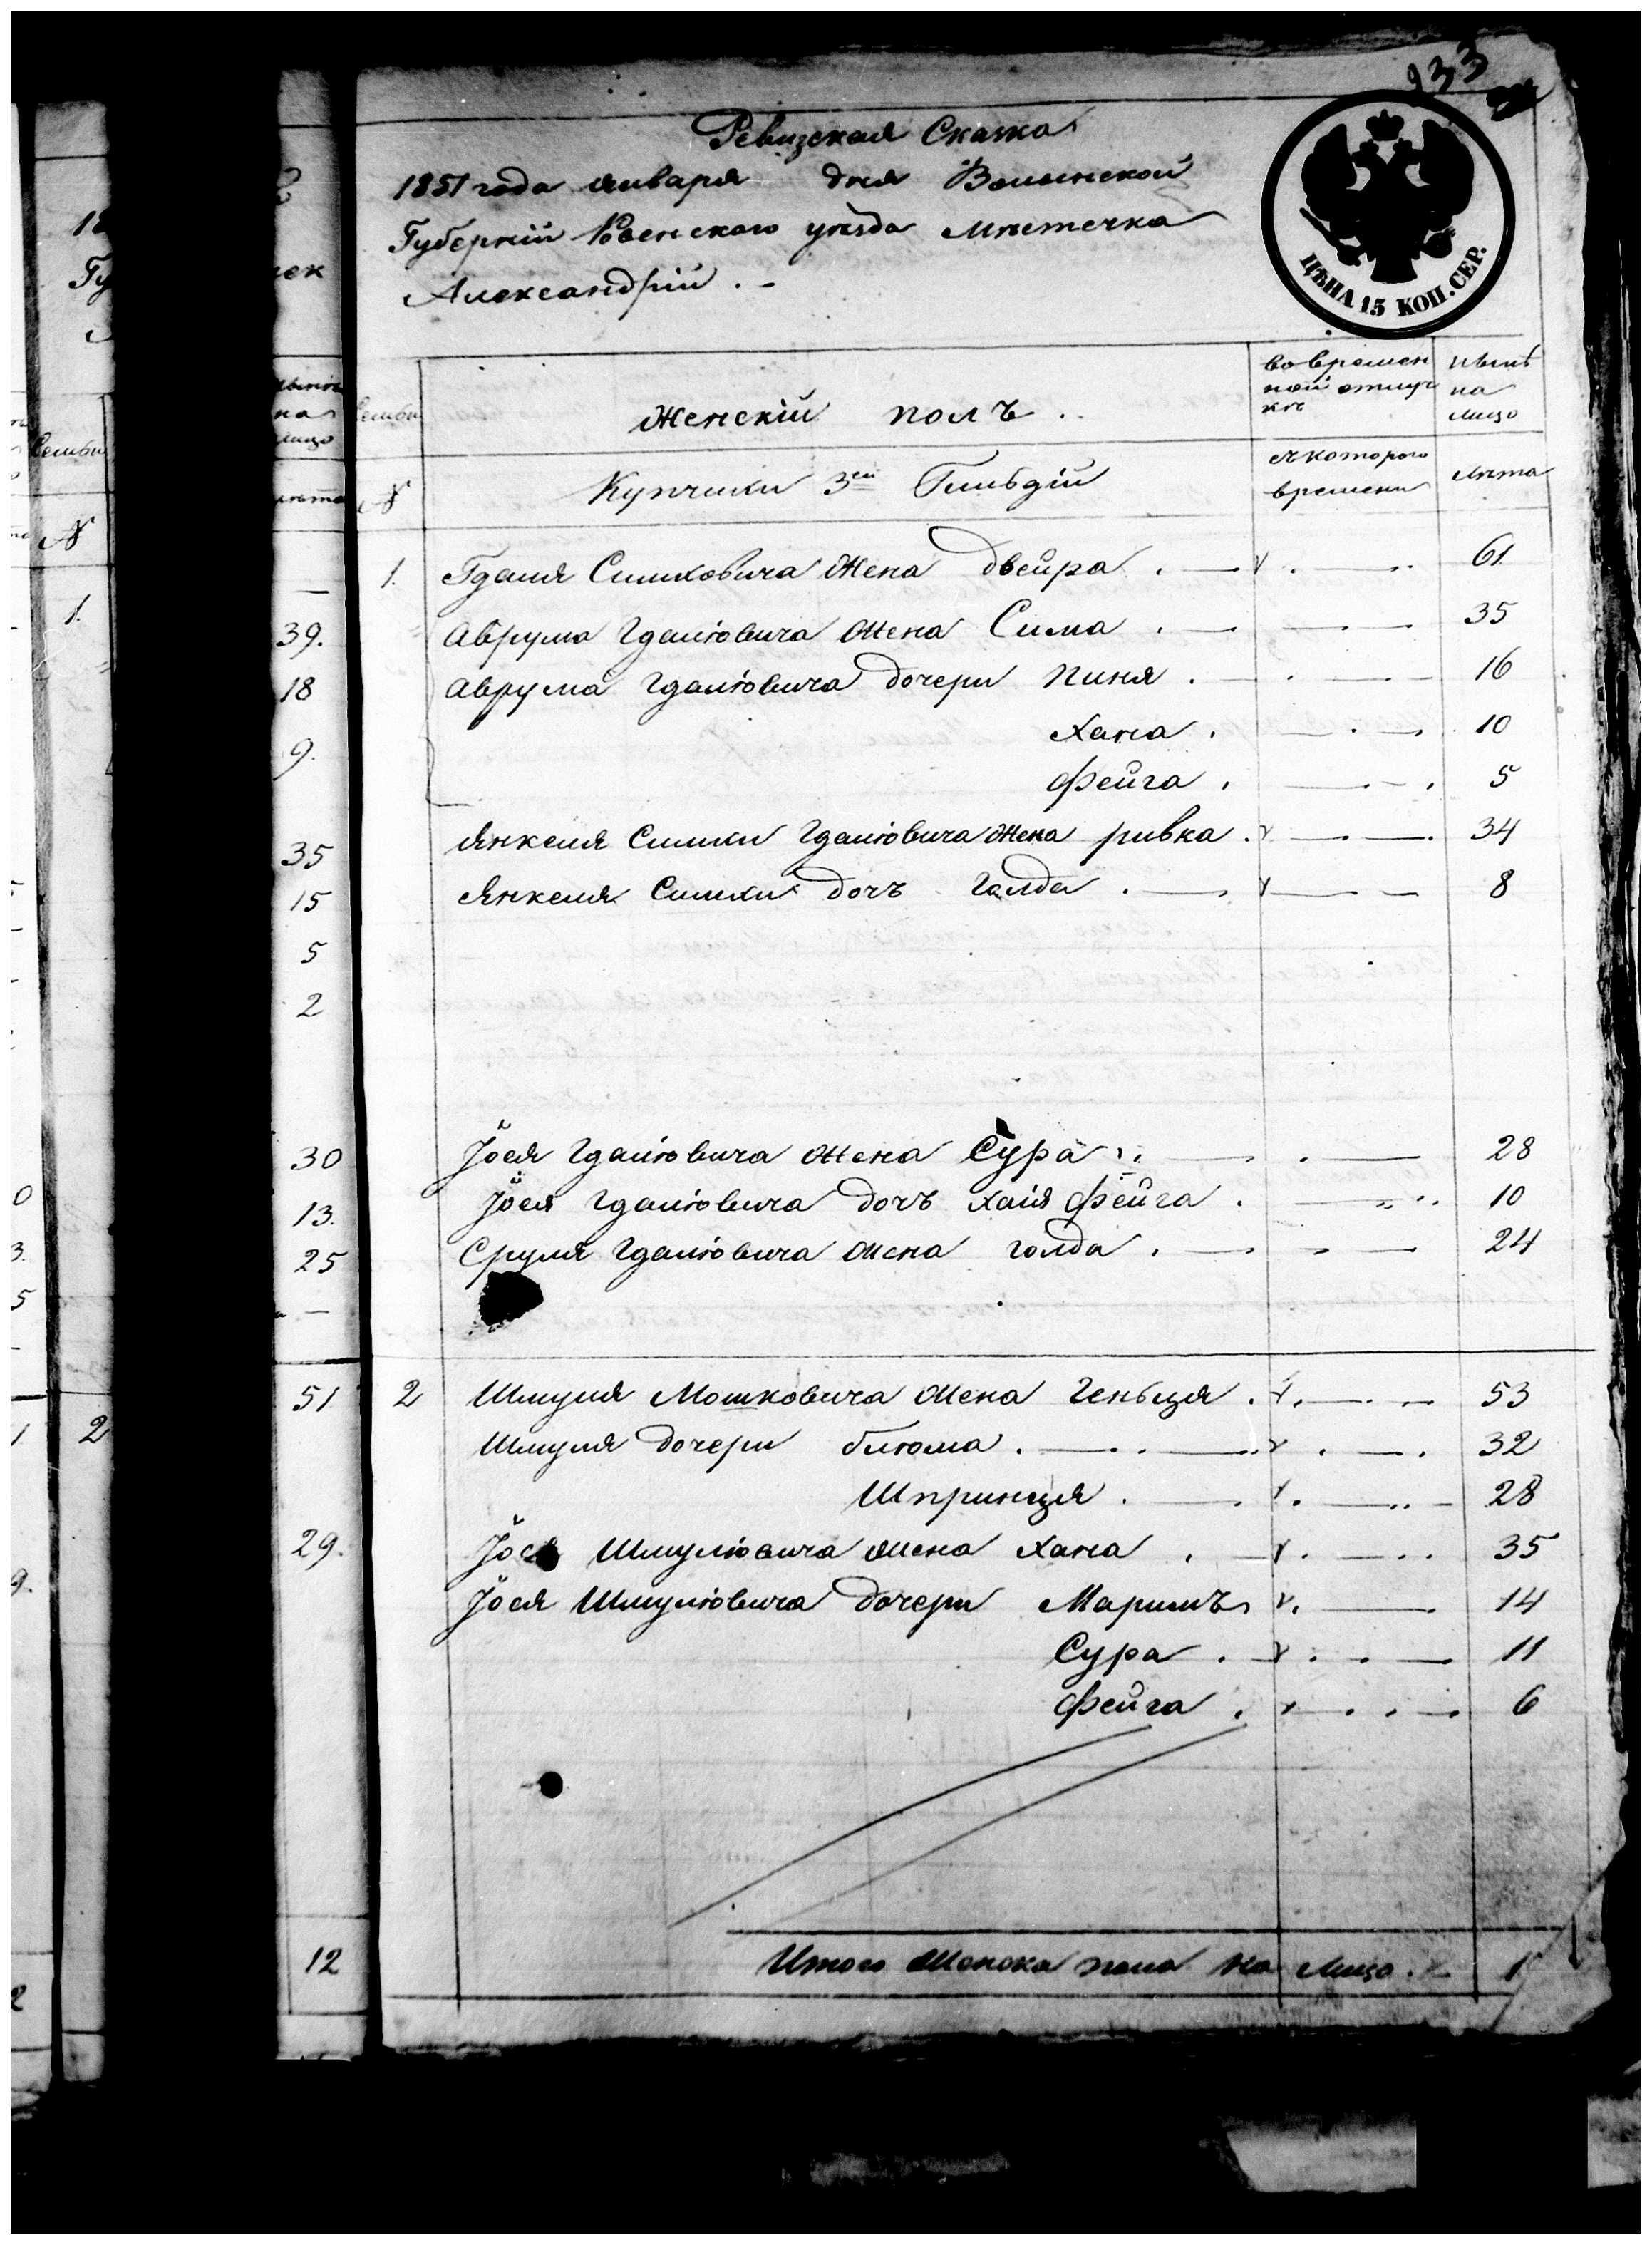 933
Ревизская Сказка
1851 года января дня Волынской
Губерніи Ровенского уѣзда мѣстечка
Александріи . -
ЦѢНА 15 КОП. СЕР.
Семьи
Женскій полъ
во времен
ной отлуч
кѣ
нынѣ
на
лицо
№
Купчихи 3ей Гильдіи
съ которого
времени
лѣта
1. Гдаля Симховича жена двейра 61
Аврума Гдалiовича жена Сима 35
Аврума Гдалiовича дочери Пиня 16
Хана 10
Фейга 5
Янкеля Симхи Гдалiовича жена ривка 34
Янкеля Симхи дочъ Голда 8
Іося Гдалiовича жена Сура 28
Іося Гдалiовича дочъ хаія фейга 10
Сруля Гдалiовича жена голда 24
2 Шмуля Мошковича жена Геньця 53
Шмуля дочери блюма 32
Шпринця 28
Іося Шмулiовича жена хана 35
Іося Шмулiовича дочери Маримъ 14
Сура 11
Фейга 6
Итого Женска пола на лицо 1
39.
18
9.
35
15
5
2
30
13.
25
51
29.
12